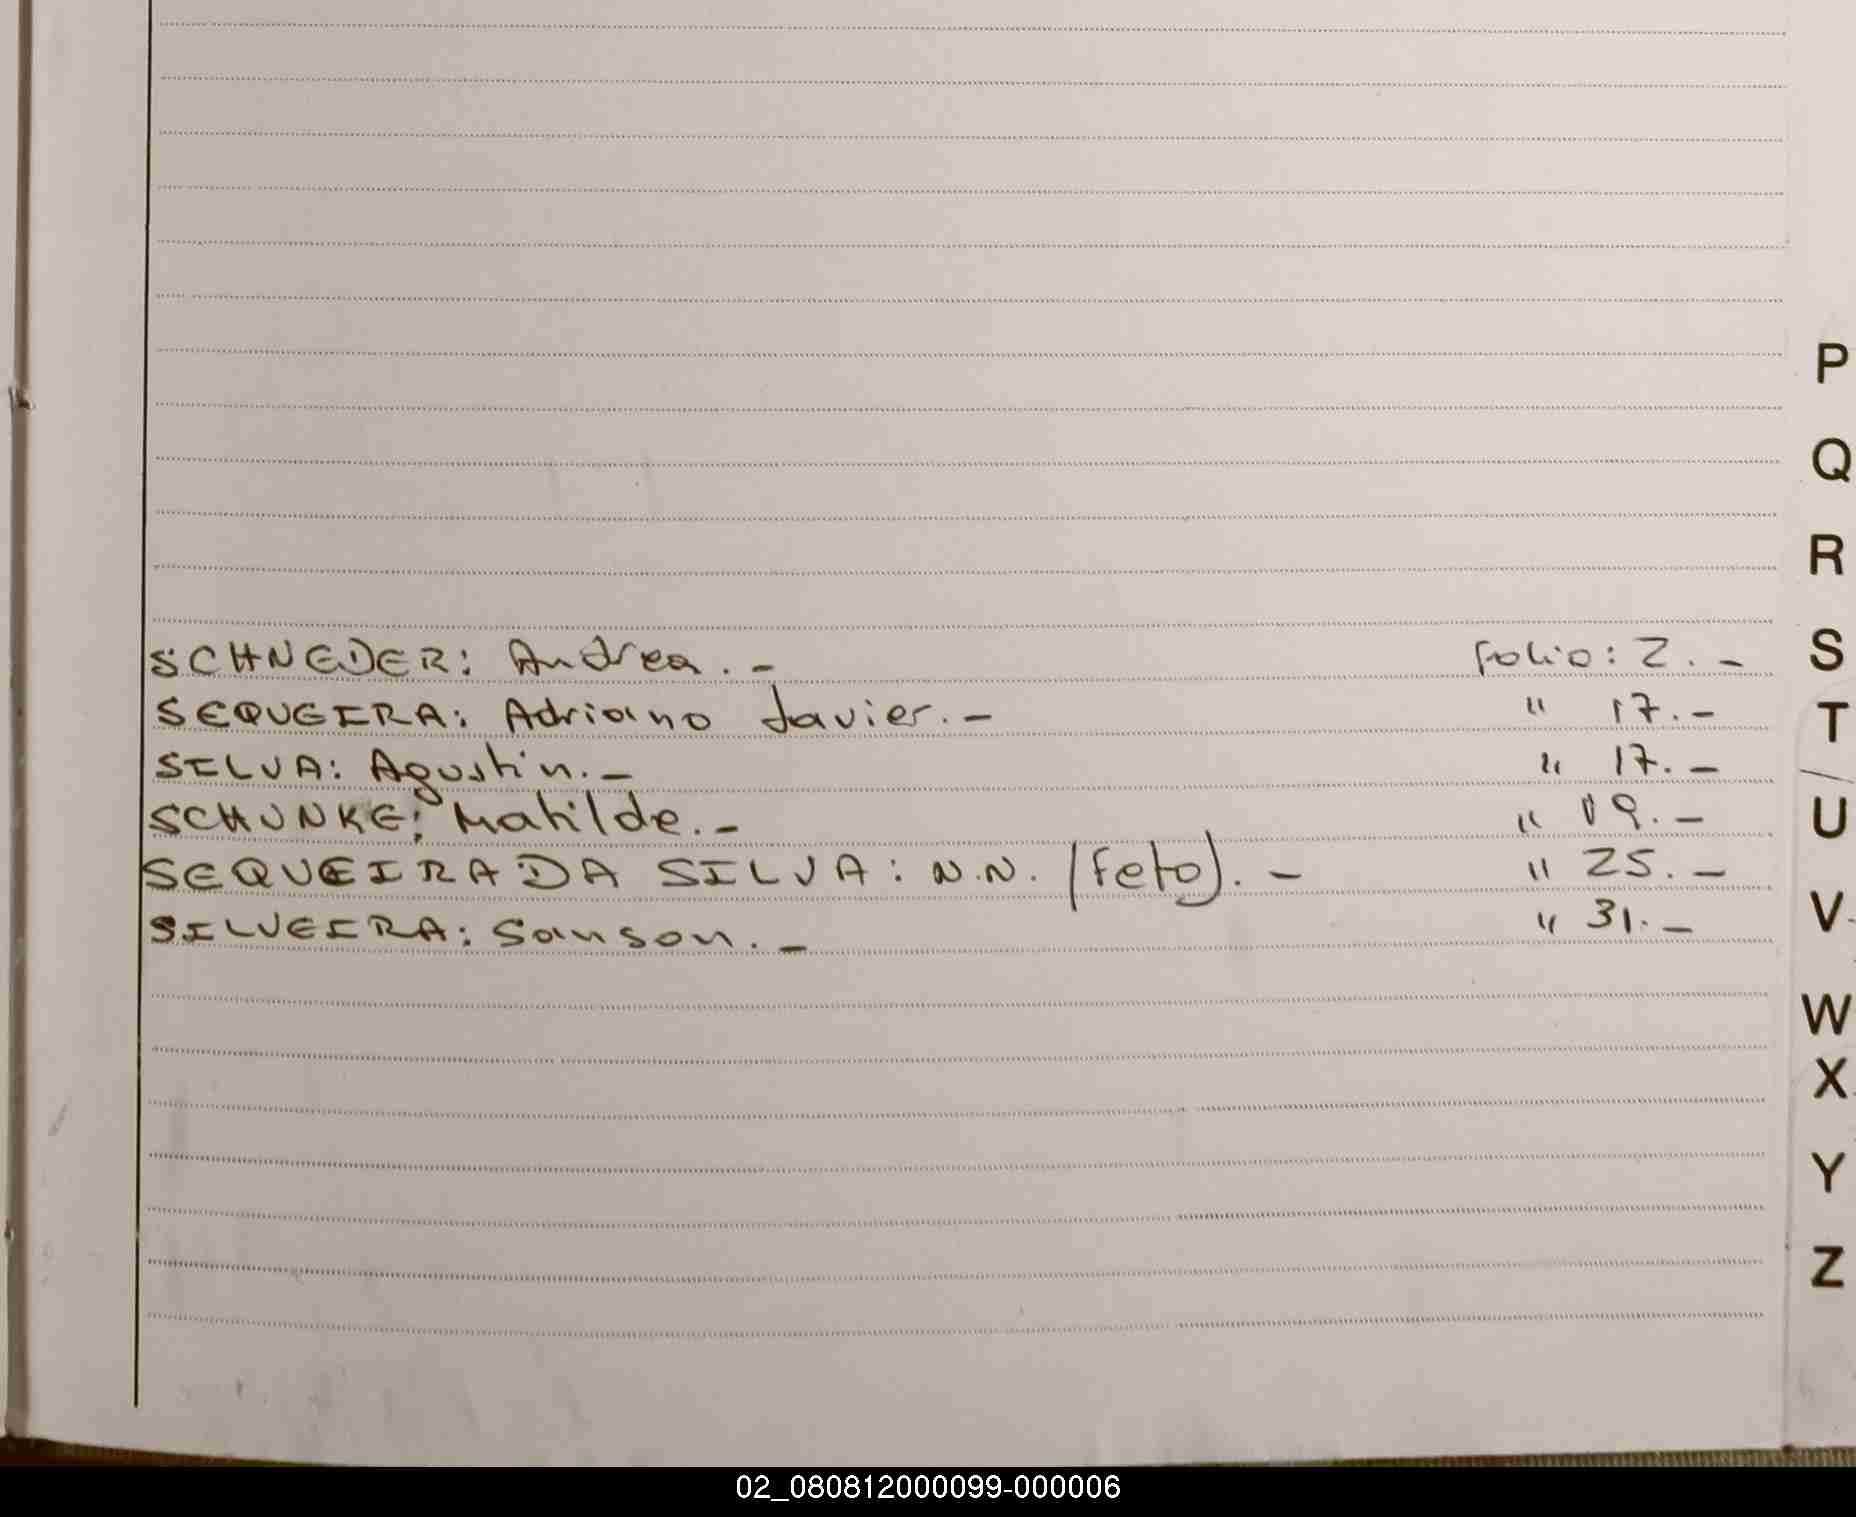 SCHNEDER: Andrea.- folio: 2.-
SEQUEIRA: Adriano Javier.- " 17.-
SILVA: Agustin.- " 17.-
SCHUNKE: Matilde.- " 19.-
SEQUEIRA DA SILVA: N.N. (Feto).- " 25.-
SILVEIRA: Sanson.- " 31.-
P
Q
R
S
T
U
V
W
X
Y
Z
02_080812000099-000006